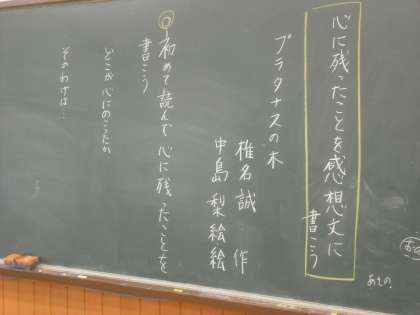 心に残ったことを感想文に
書こう
プラタナスの木
椎名誠 作
中島梨絵 絵
◎初めて読んで心に残ったことを
書こう
どこが心にのこったか
そのわけは…